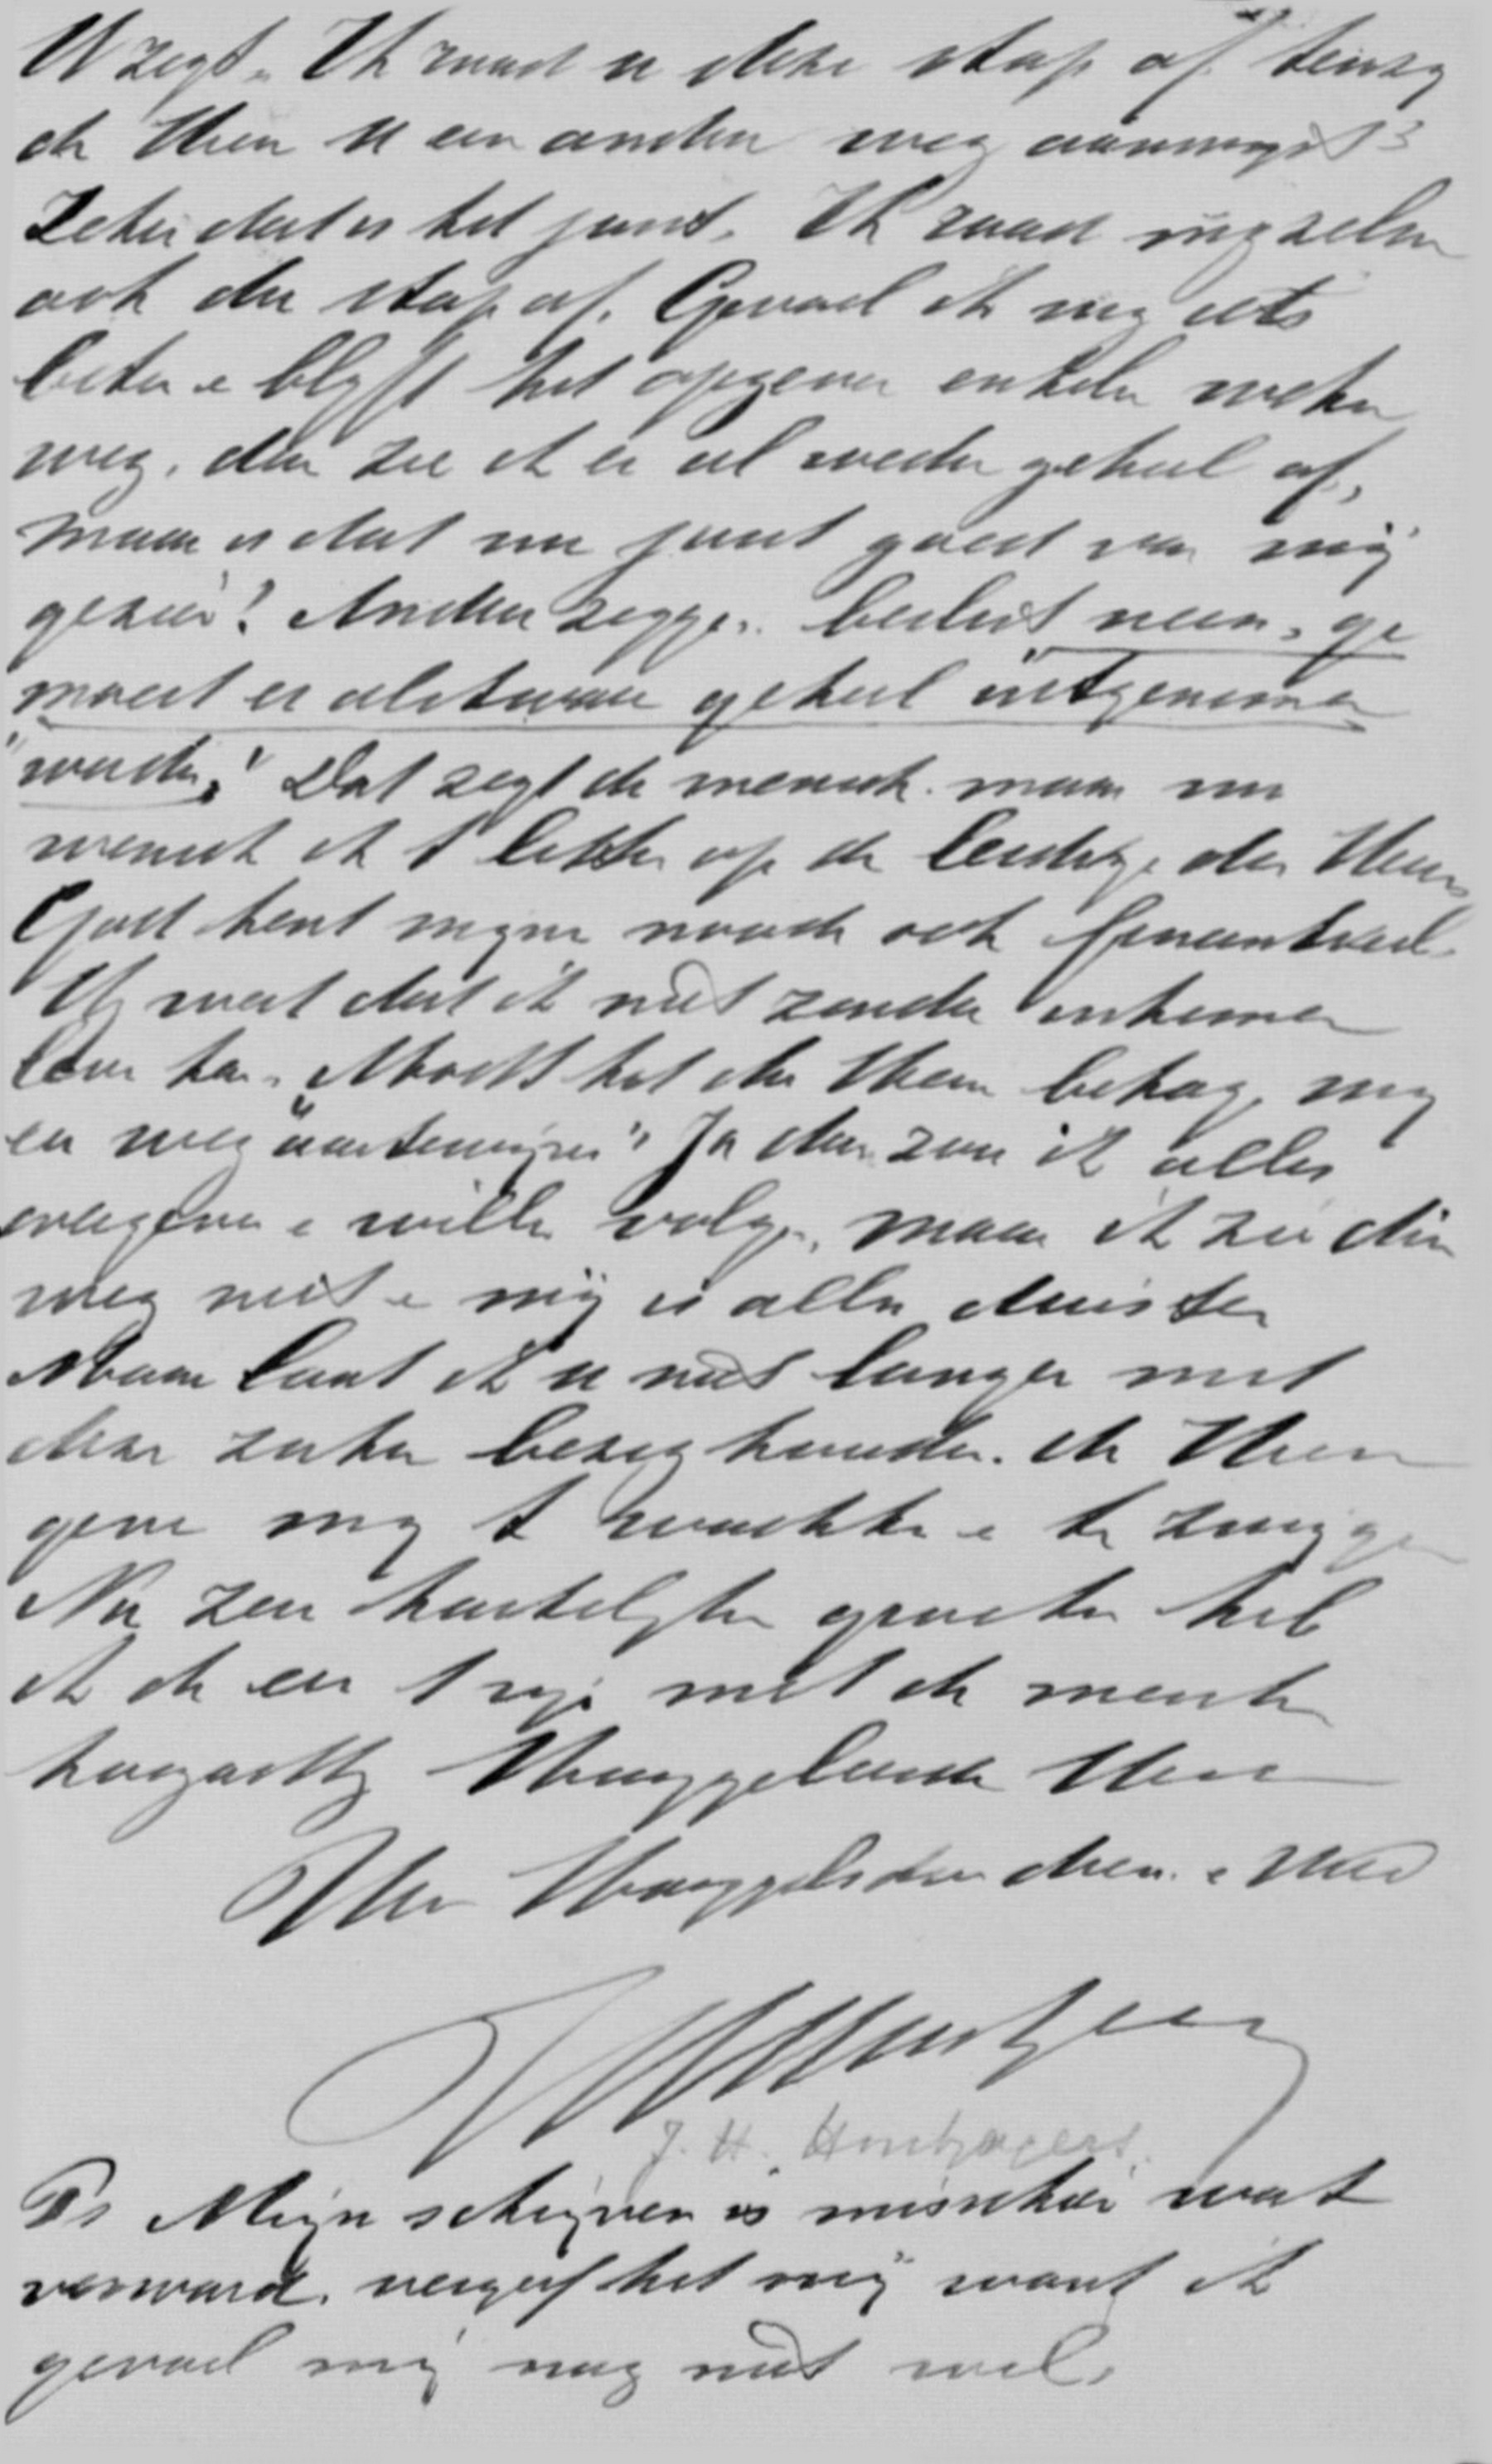 U zegt „Ik raad u deze stap af tenzij
de Heer U een ander weg aanwijst"
Zeker dat is het juist. Ik raad mijzelve
ook die stap af. Gevoel ik mij iets
beter e blijft het opgeven enkele weken
weg, dan zie ik er al weder geheel af,
maar is dat nu juist goed van mij
gezien? Andere zeggen „beslist neen, ge
moest er alstware geheel uitgenomen
worden." Dat zegt de mensch. maar nu
wensch ik te letten op de leiding des Heeren
God kent mijne noode ook finantieel.
U weet dat ik niet zonder inkomen
leven kan. Mocht het den Heere behage, mij
en weg "aantewijzen" Ja dan zou ik alles
overgeven e wille volge, maar ik zie die
weg niet e mij is alles duister
Maar laat ik u niet langer met
deze zaken bezig houden. de Heere
geve mij te wachten e te zwijgen
Na zeer hartelijke groeten heb
ik de eer te zijn met de meeste
hoogachtg Hooggeleerde Heer
Uw Hooggel. dw. dien. e Vriend
J H Houtzagers
J. H. Houtzagers.
Ps Mijn schrijven is misschien wat
verward. vergeef het mij want ik
gevoel mij nog niet wel.